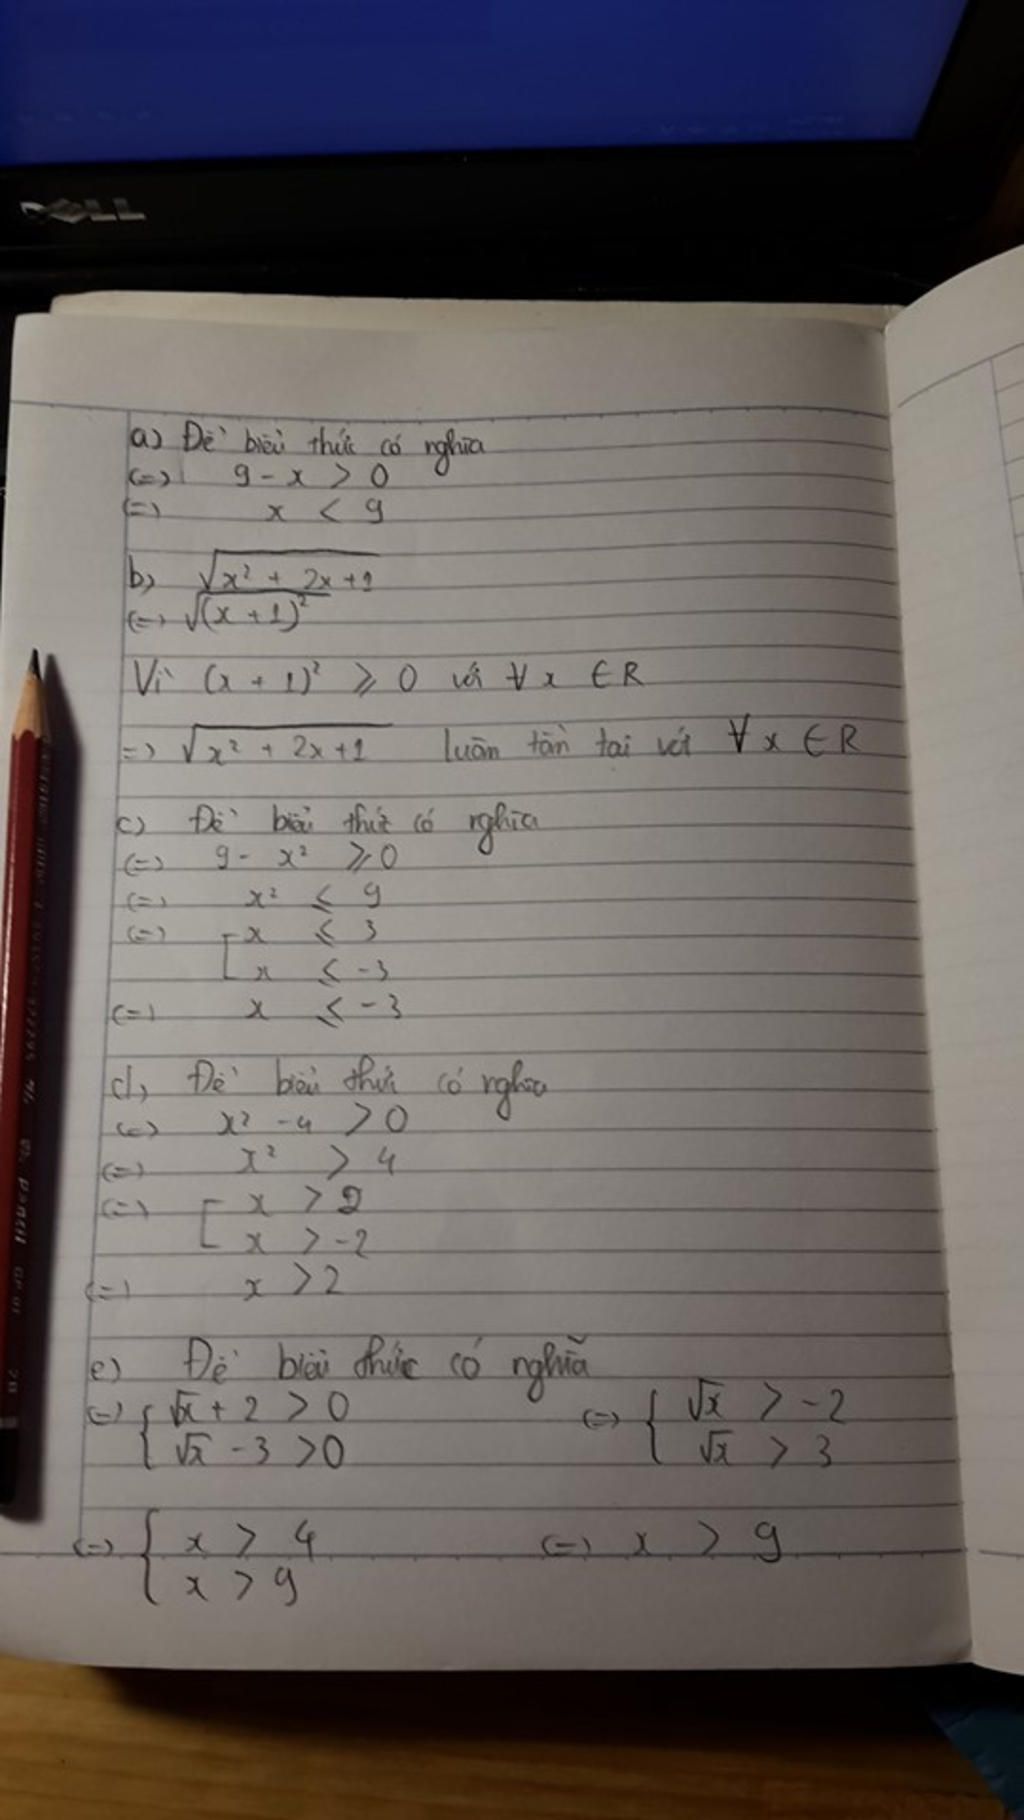 DELL
a) Để biểu thức có nghĩa
(=) 9 - x > 0
(=) x < 9
b) √(x² + 2x + 1)
(=) √(x + 1)²
Vì (x + 1)² ⩾ 0 với ∀ x ∈ R
=) √(x² + 2x + 1) luôn tồn tại với ∀ x ∈ R
c) Để biểu thức có nghĩa
(=) 9 - x² ⩾ 0
(=) x² ⩽ 9
(=) [ x ⩽ 3
x ⩽ -3
(=) x ⩽ -3
d) Để biểu thức có nghĩa
(=) x² - 4 > 0
(=) x² > 4
(=) [ x > 2
x > -2
(=) x > 2
e) Để biểu thức có nghĩa
(=) { √x + 2 > 0 (=) { √x > -2
√x - 3 > 0 √x > 3
(=) { x > 4 (=) x > 9
x > 9